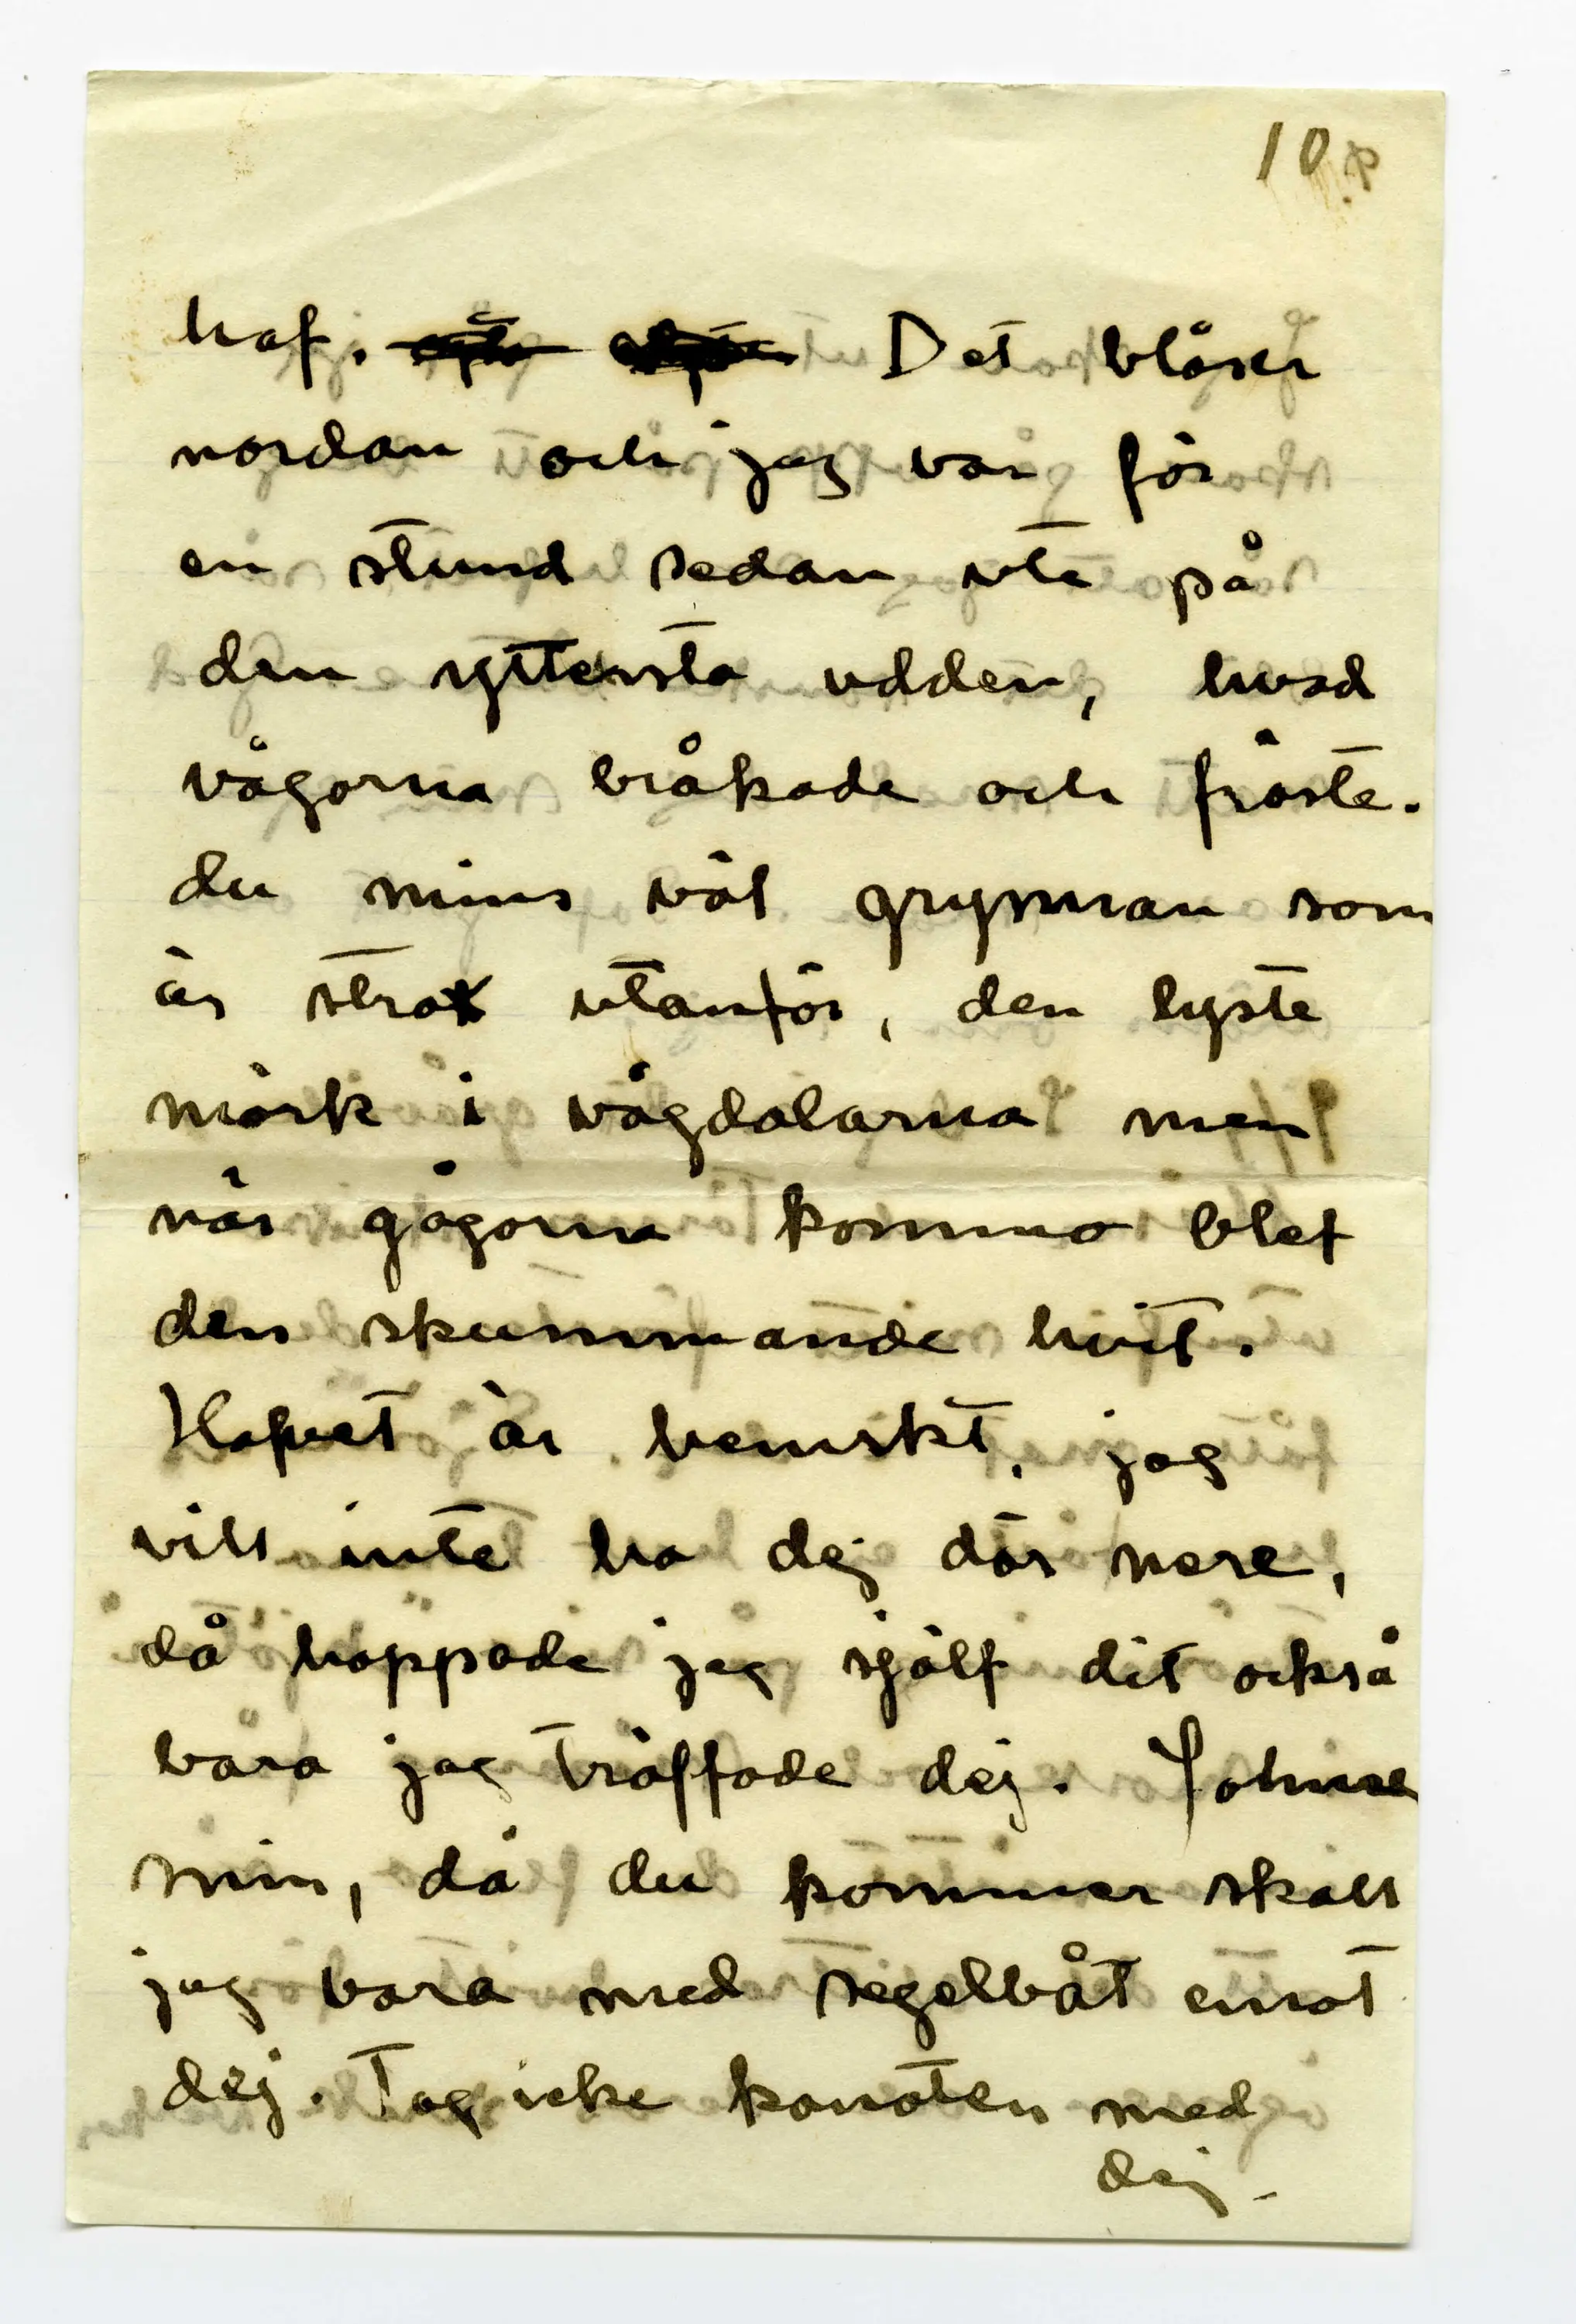 10
haf. Det blåser
nordan och jag var för
en stund sedan ute på
den yttersta udden, hvad
vågorna bråkade och fräste.
du mins väl grynnan som
är strax utanför, den lyste
mörk i vågdalarna men
när gågorna kommo blef
den skummande hvit.
Hafvet är hemskt, jag
vill inte ha dej där nere,
då hoppade jag själf dit också
bara jag träffade dej. Johnne
min, då du kommer skall
jag vara med segelbåt emot
dej. Tag icke kanoten med
dej.